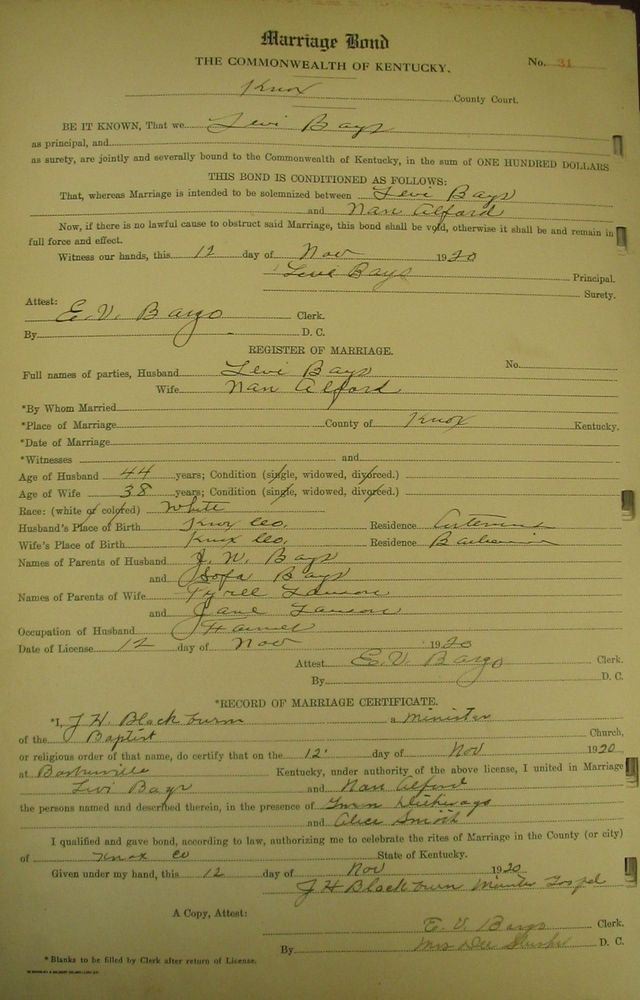 Marriage Bond
THE COMMONWEALTH OF KENTUCKY.
No. 31
Knox County Court.
BE IT KNOWN, That we Levi Bays
as principal, and
as surety, are jointly and severally bound to the Commonwealth of Kentucky, in the sum of ONE HUNDRED DOLLARS
THIS BOND IS CONDITIONED AS FOLLOWS:
That, whereas Marriage is intended to be solemnized between Levi Bays
and Nan Alford
Now, if there is no lawful cause to obstruct said Marriage, this bond shall be void, otherwise it shall be and remain in
full force and effect.
Witness our hands, this 12 day of Nov 1920
Levi Bays Principal.
Surety.
Attest:
E. V. Bargo Clerk.
By D. C.
REGISTER OF MARRIAGE.
No.
Full names of parties, Husband Levi Bays
Wife Nan Alford
*By Whom Married
*Place of Marriage County of Knox Kentucky.
*Date of Marriage
*Witnesses and
Age of Husband 44 years; Condition (single, widowed, divorced.)
Age of Wife 38 years; Condition (single, widowed, divorced.)
Race: (white or colored) White
Husband's Place of Birth Knox Co. Residence Artemus
Wife's Place of Birth Knox Co. Residence
Names of Parents of Husband J. W. Bays
and Sofa Bays
Names of Parents of Wife Tyrell
and Jane
Occupation of Husband Farmer
Date of License 12 day of Nov 1920
Attest E. V. Bargo Clerk.
By D. C.
*RECORD OF MARRIAGE CERTIFICATE.
*I, J H. Blackburn a minister
of the Baptist Church,
or religious order of that name, do certify that on the 12 day of Nov 1920
at Barbourville Kentucky, under authority of the above license, I united in Marriage
Levi Bays and Nan Alford
the persons named and described therein, in the presence of
and Alice Smith
I qualified and gave bond, according to law, authorizing me to celebrate the rites of Marriage in the County (or city)
of Knox Co State of Kentucky.
Given under my hand, this 12 day of Nov 1920
J H Blackburn Minister Gospel
A Copy, Attest:
E. V. Bargo Clerk.
By Mrs Dee D. C.
*Blanks to be filled by Clerk after return of License.